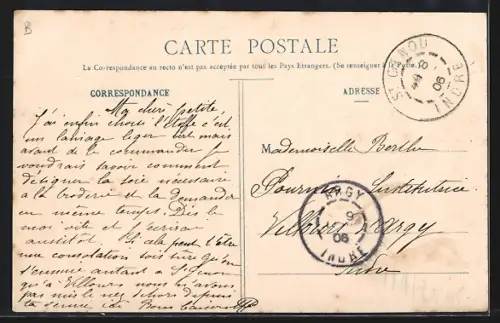 B
CARTE POSTALE
La Correspondance au recto n'est pas acceptée par tous les Pays Etrangers. (Se renseigner à la Poste).
CORRESPONDANCE
ADRESSE
Ma chère petite
J'ai enfin choisi l'étoffe c'est
un lainage léger vert mais
avant de le commander je
voudrais savoir comment
désigner la soie nécessaire
à la broderie et la demander
en même temps. Dis le
moi vite et j'écrirai
aussitôt. Si cela peut t'être
une consolation sois sûre qu'on
s'ennuie autant à St Genou
qu'à Villours nous n'avons
pas mis le nez dehors depuis
ta venue ici Bons baisers
Mademoiselle Berthe
Fournier Institutrice
Villours Argy
Indre
ST GENOU
8
06
INDRE
ARGY
9
06
INDRE